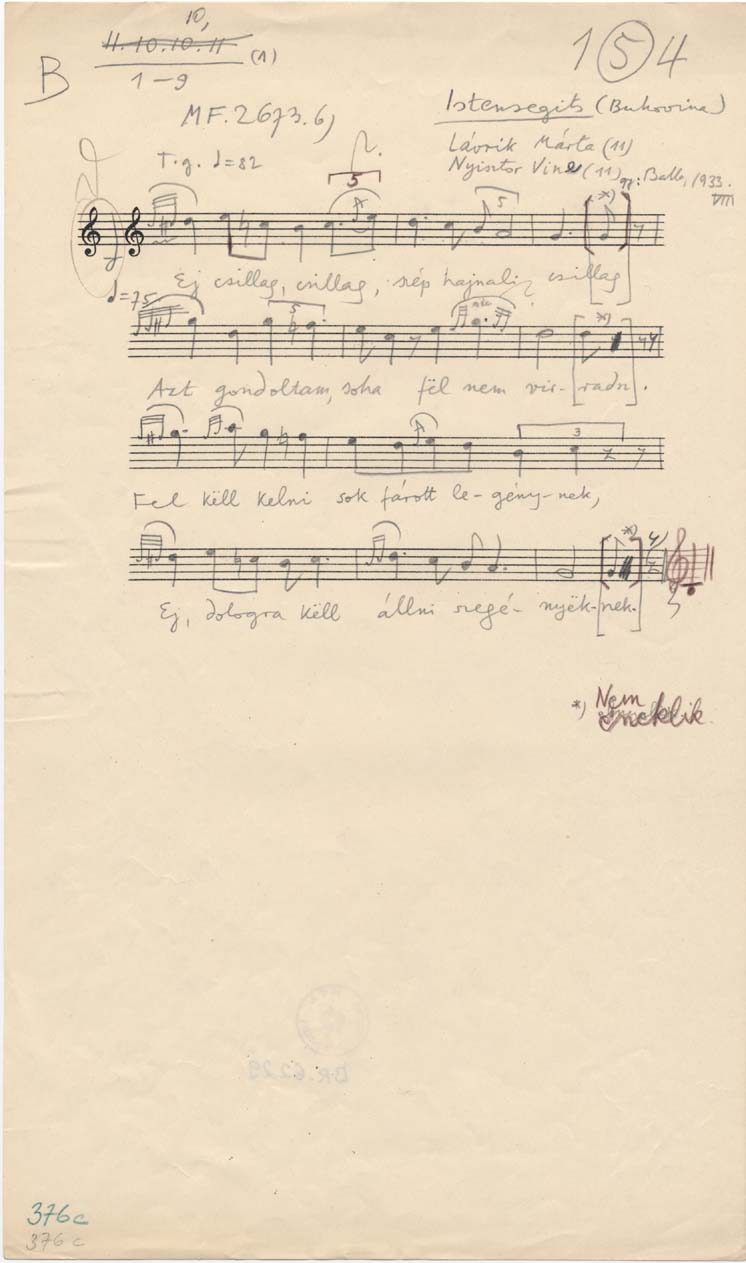 10,
11.10.10.11 (1)
1-9
B
1 5 4
MF. 2673.b)
Istensegits (Bukovina)
Lávrik Márta (11)
Nyisztor Vince (11) gy: Balla, 1933. VIII
T.g. ♩=82
5
*)
5
Ej csillag, csillag, szép hajnali csillag
♩=75
5
*)
Azt gondoltam, soha fël nem vir-radsz.
3
Fel këll kelni sok fárott le-gény-nek,
*)
Ej, dologra këll állni szegé-nyëk-nek.
*) Nem
éneklik.
376c
376c